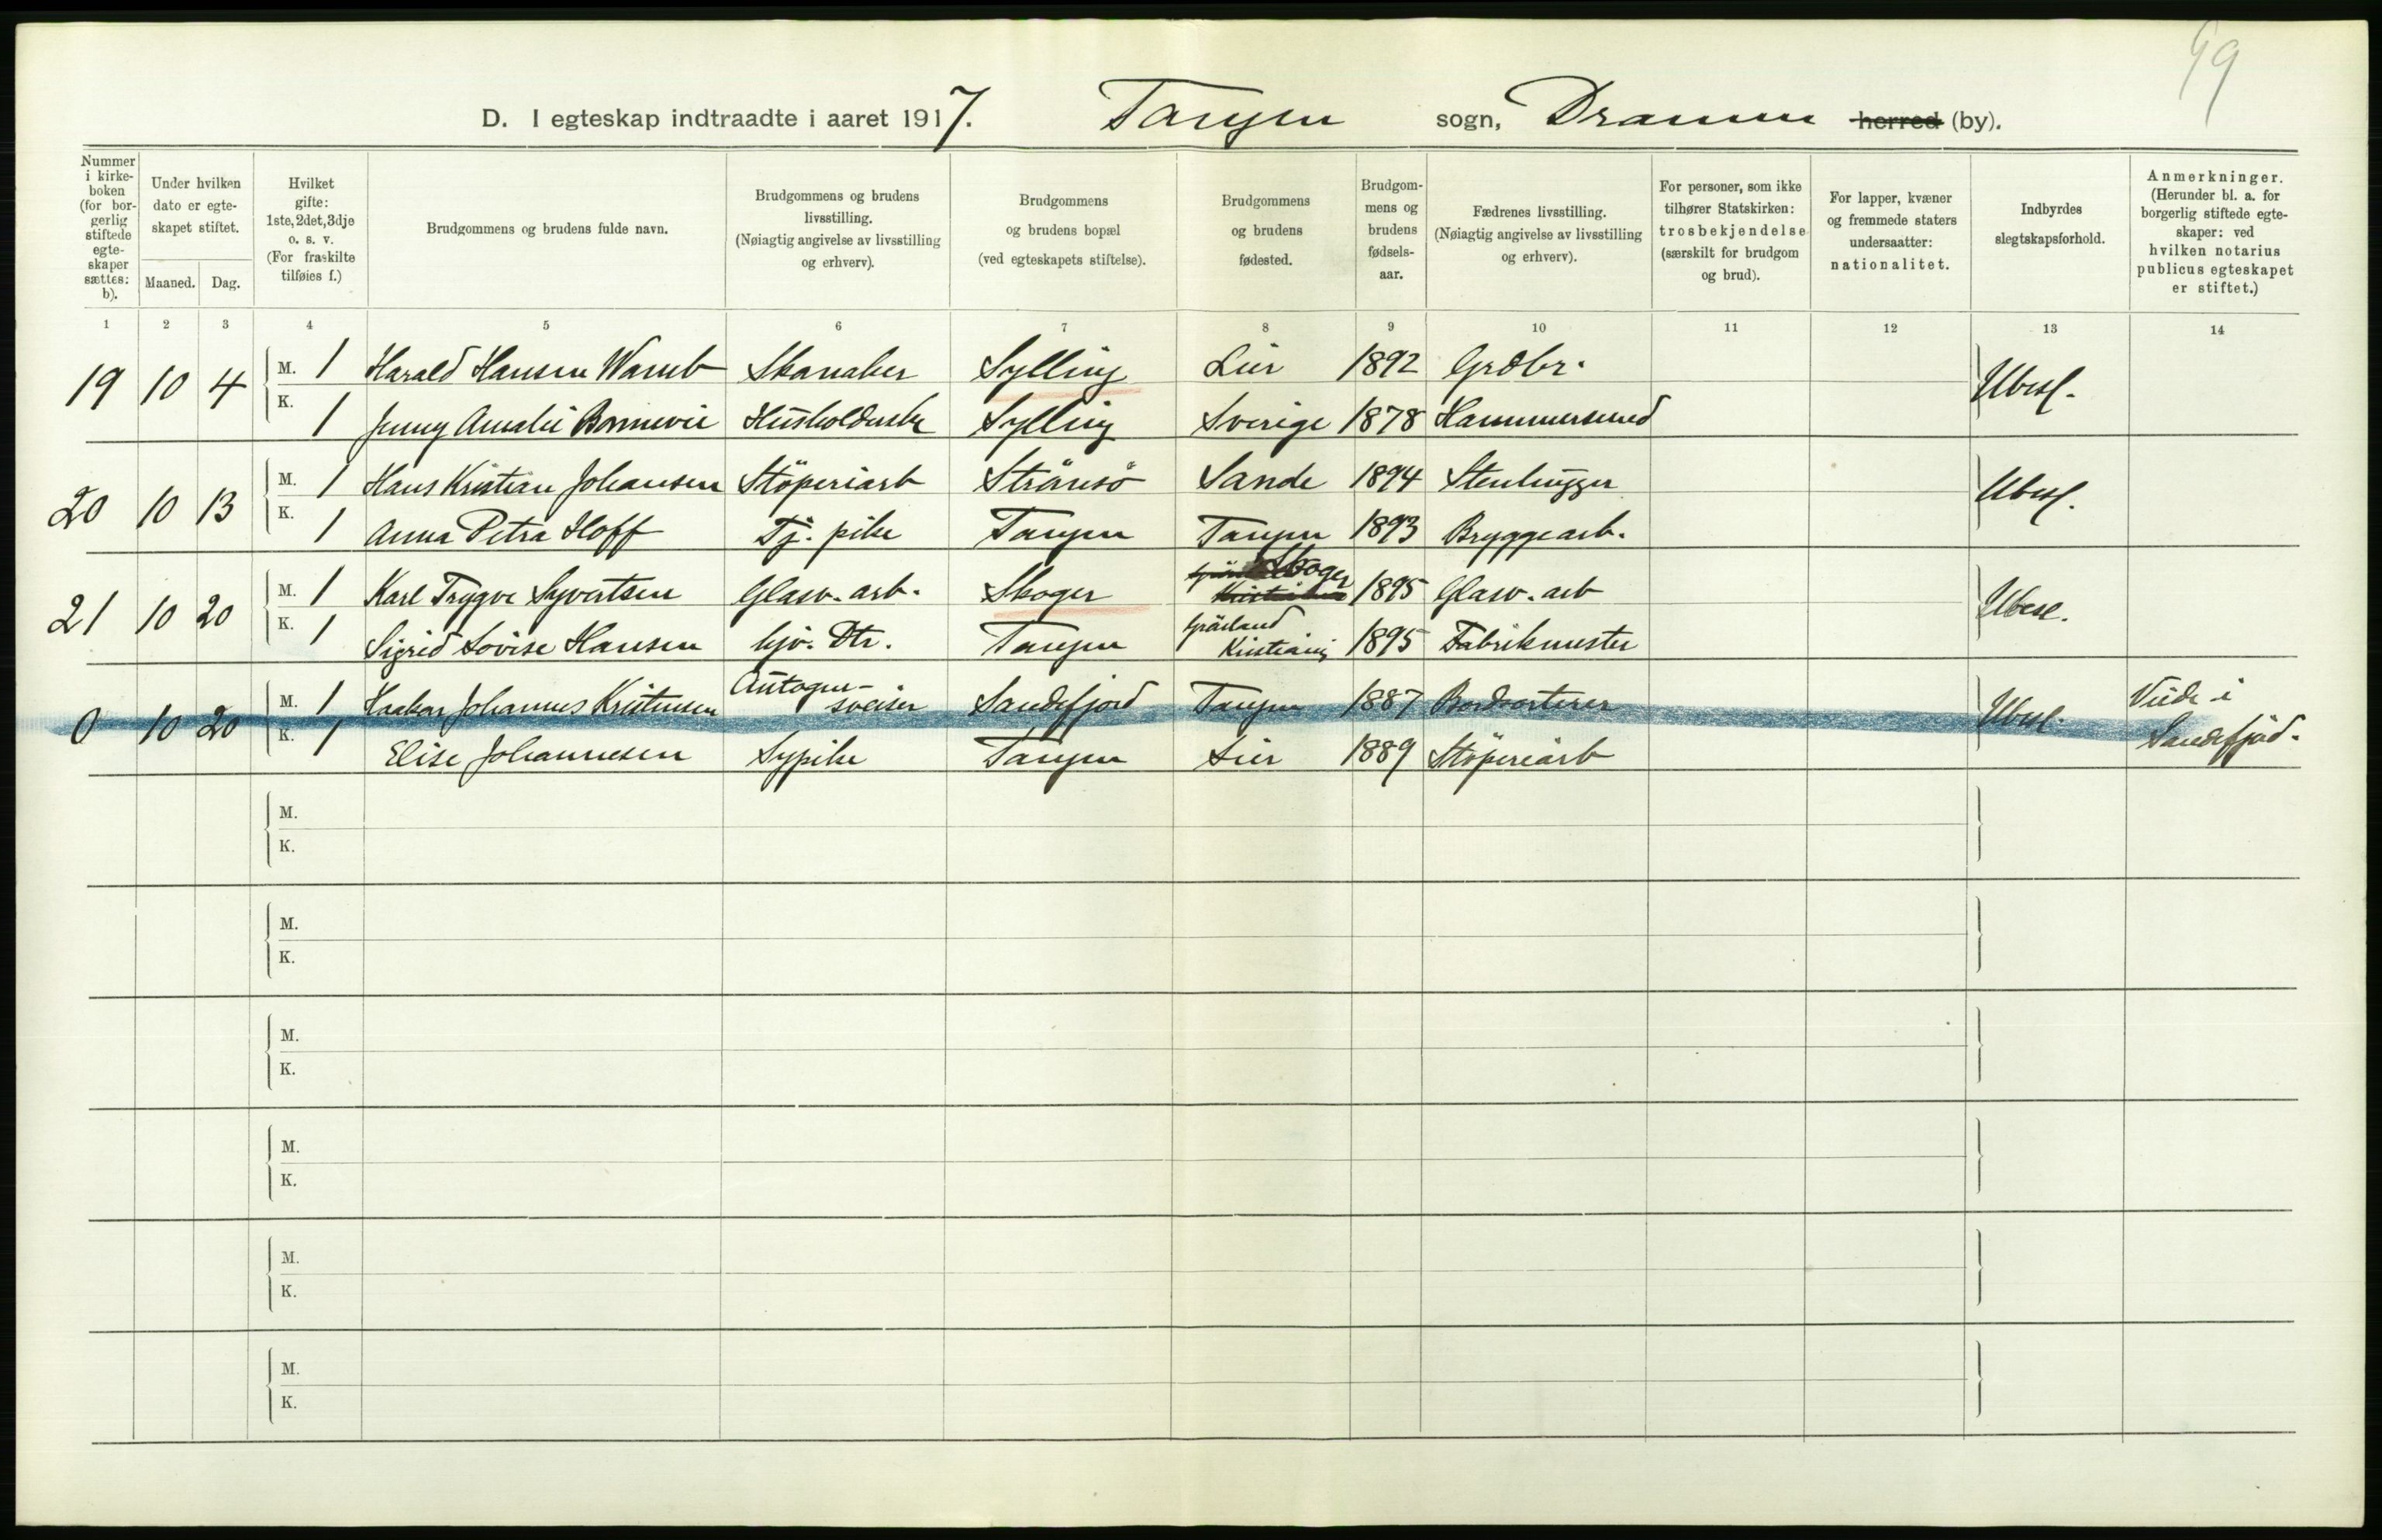 99
D. I egteskap indtraadte i aaret 1917. Tangen sogn, Drammen herred (by).
Nummer i kirkeboken (for borgerlig stiftede egteskaper sættes: b).
Under hvilken dato er egteskapet stiftet.
Maaned. Dag.
Hvilket gifte: 1ste, 2det, 3dje o. s. v. (For fraskilte tilføies f.)
Brudgommens og brudens fulde navn.
Brudgommens og brudens livsstilling. (Nøiagtig angivelse av livsstilling og erhverv).
Brudgommens og brudens bopæl (ved egteskapets stiftelse).
Brudgommens og brudens fødested.
Brudgommens og brudens fødselsaar.
Fædrenes livsstilling. (Nøiagtig angivelse av livsstilling og erhverv).
For personer, som ikke tilhører Statskirken: trosbekjendelse (særskilt for brudgom og brud).
For lapper, kvæner og fremmede staters undersaatter: nationalitet.
Indbyrdes slegtskapsforhold.
Anmerkninger. (Herunder bl. a. for borgerlig stiftede egteskaper: ved hvilken notarius publicus egteskapet er stiftet.)
1 2 3 4 5 6 7 8 9 10 11 12 13 14
19 10 4 M. 1 Harald Hansen Sylling Lier 1892 Grdbr. Ubesl.
K. 1 Jenny Amalie Bonnevie Husholderske Sylling Sverige 1878 Hammersmed
20 10 13 M. 1 Hans Kristian Johansen Støperiarb Strømsø Sande 1894 Stenhugger Ubesl.
K. 1 Anna Petra Hoff Tj. pike Tangen Tangen 1893 Bryggearb.
21 10 20 M. 1 Karl Trygve Syvertsen Glasv. arb. Skoger Skoger 1895 Glasv. arb Ubesl.
K. 1 Sigrid Lovise Hansen hjv. Dtr. Tangen Grønland Kristiania 1895 Fabrikmester
0 10 20 M. 1 Haakon Johannes Kristensen Autogensveiser Sandefjord Tangen 1887 Bordsorterer Ubesl. Viede i
K. 1 Elise Johannesen Sypike Tangen Lier 1889 Støperiarb Sandefjord.
M.
K.
M.
K.
M.
K.
M.
K.
M.
K.
M.
K.